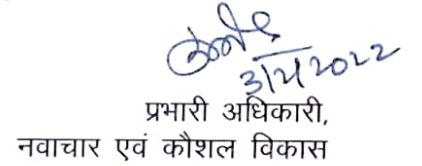 3/4/2022
प्रभारी अधिकारी,
नवाचार एवं कौशल विकास